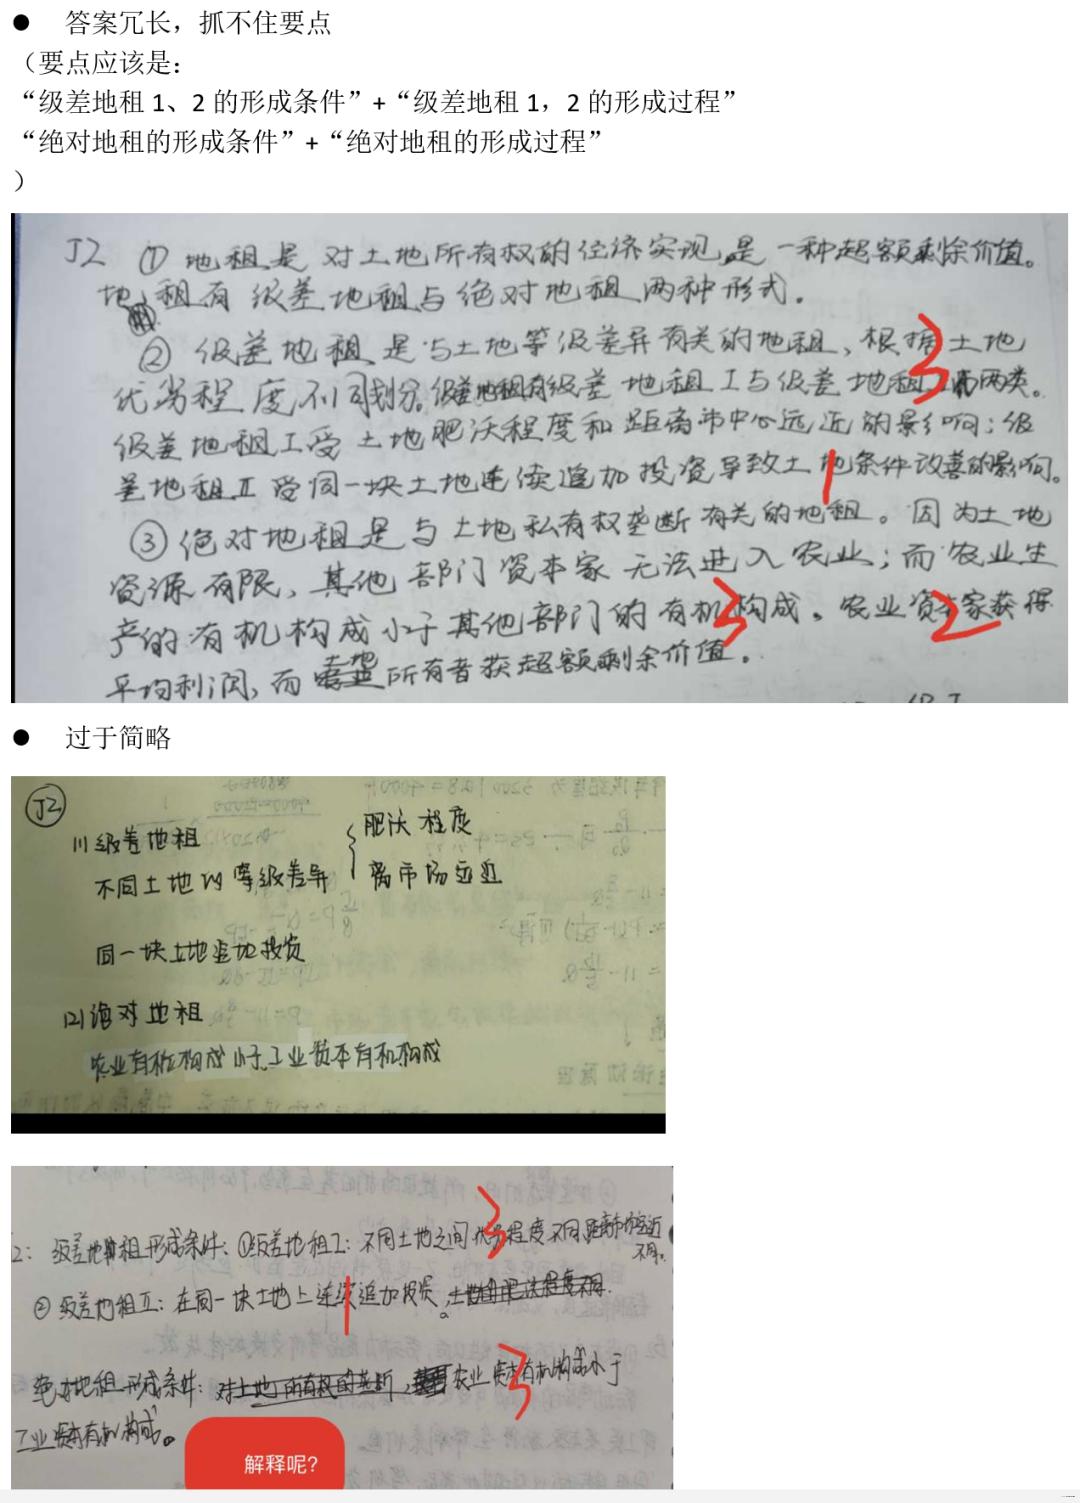 ● 答案冗长，抓不住要点
（要点应该是：
“级差地租 1、2 的形成条件”+“级差地租 1，2 的形成过程”
“绝对地租的形成条件”+“绝对地租的形成过程”
）
J2 ① 地租是对土地所有权的经济实现,是一种超额剩余价值。
地租有级差地租与绝对地租两种形式。
② 级差地租是与土地等级差异有关的地租、根据土地
优劣程度不同划分。级差地租有级差地租I与级差地租 两类。
级差地租工受土地肥沃程度和距离市中心远近的影响；级
差地租Ⅱ受同一块土地连续追加投资导致土地条件改善的影响。
③ 绝对地租是与土地私有权垄断有关的地租。因为土地
资源有限、其他部门资本家无法进入农业；而农业生
产的有机构成小于其他部门的有机构成。农业资本家获得
平均利润,而 所有者获超额剩余价值。
3
1
3
2
● 过于简略
J2
(1) 级差地租
不同土地的等级差异 { 肥沃程度
离市场远近
同一块土地追加投资
(2) 绝对地租
农业有机构成小于工业资本有机构成
2： 级差地租形成条件：①级差地租I：不同土地之间优劣程度不同,距离市场远近
不同。
② 级差地租Ⅱ：在同一块土地上连续追加投资。
绝对地租形成条件：对土地所有权的垄断, 农业资本有机构成小于
工业资本有机构成。
3
1
3
解释呢?